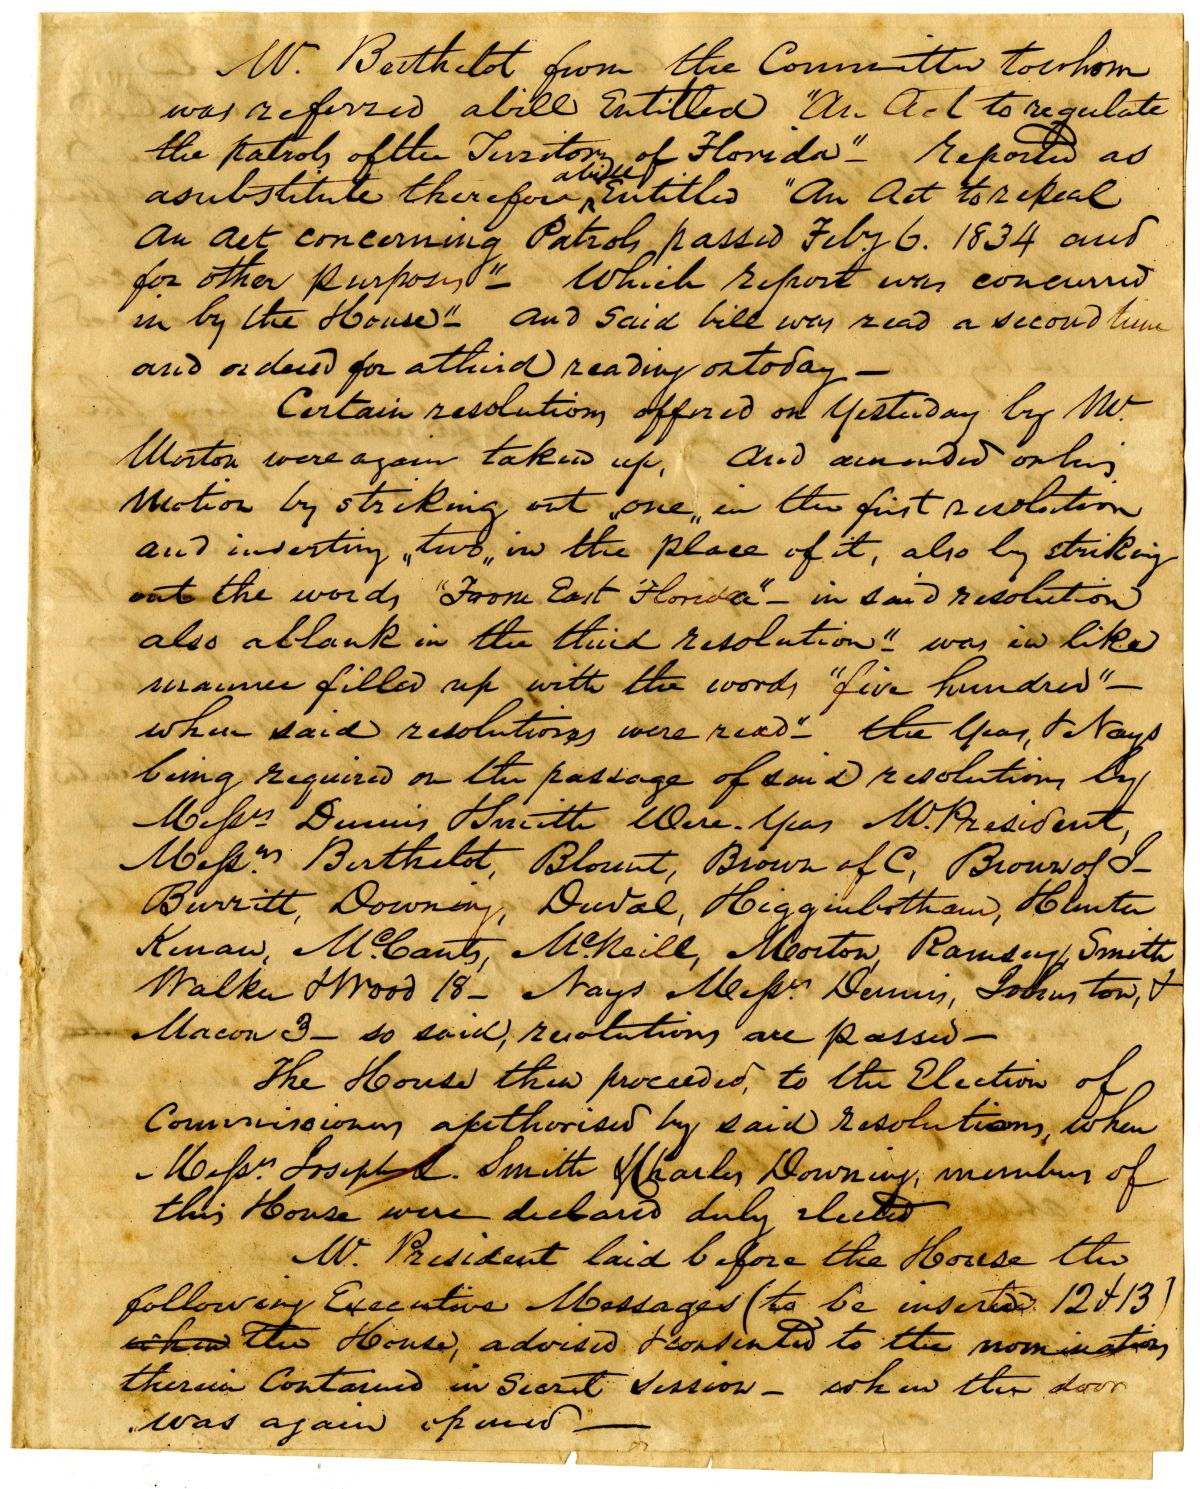 Mr. Berthelot from the Committee to whom
was referred a bill Entitled "An Act to regulate
the patrols of the Territory of Florida"- Reported as
a substitute therefor a bill Entitled "An Act to repeal
An Act concerning Patrols passed Feby 6. 1834 and
for other purposes"- Which report was concurred
in by the House"- and said bill was read a second time
and ordered for a third reading on today —
Certain resolutions offered on yesterday by Mr.
Morton were again taken up, And amended on his
Motion by striking out „one„ in the first resolution
and inserting „two„ in the place of it, also by striking
out the words "From East Florida"- in said resolution
also a blank in the third resolution"- was in like
manner filled up with the words "five hundred"-
when said resolutions were read"- the Yeas, & Nays
being required on the passage of said resolutions by
Messrs Dennis & Smith Were- Yeas Mr. President,
Messrs Berthelot, Blount, Brown of C, Brown of J-
Burritt, Downing, Duval, Higginbotham, Hunter
Kenan, McCants, McNeill, Morton, Ramsey, Smith
Walker & Wood 18- Nays Messrs Dennis, Johnston, &
Macon 3- so said, resolutions are passed-
The House then proceeded, to the Election of
Commissioners authorised by said resolutions, when
Messrs Joseph L. Smith & Charles Downing, members of
this House were declared duly elected
Mr. President laid before the House the
following Executive Messages (to be inserted 12 & 13)
when The House, advised & consented to the nominations
therein Contained in Secret session- when the door
was again opened —